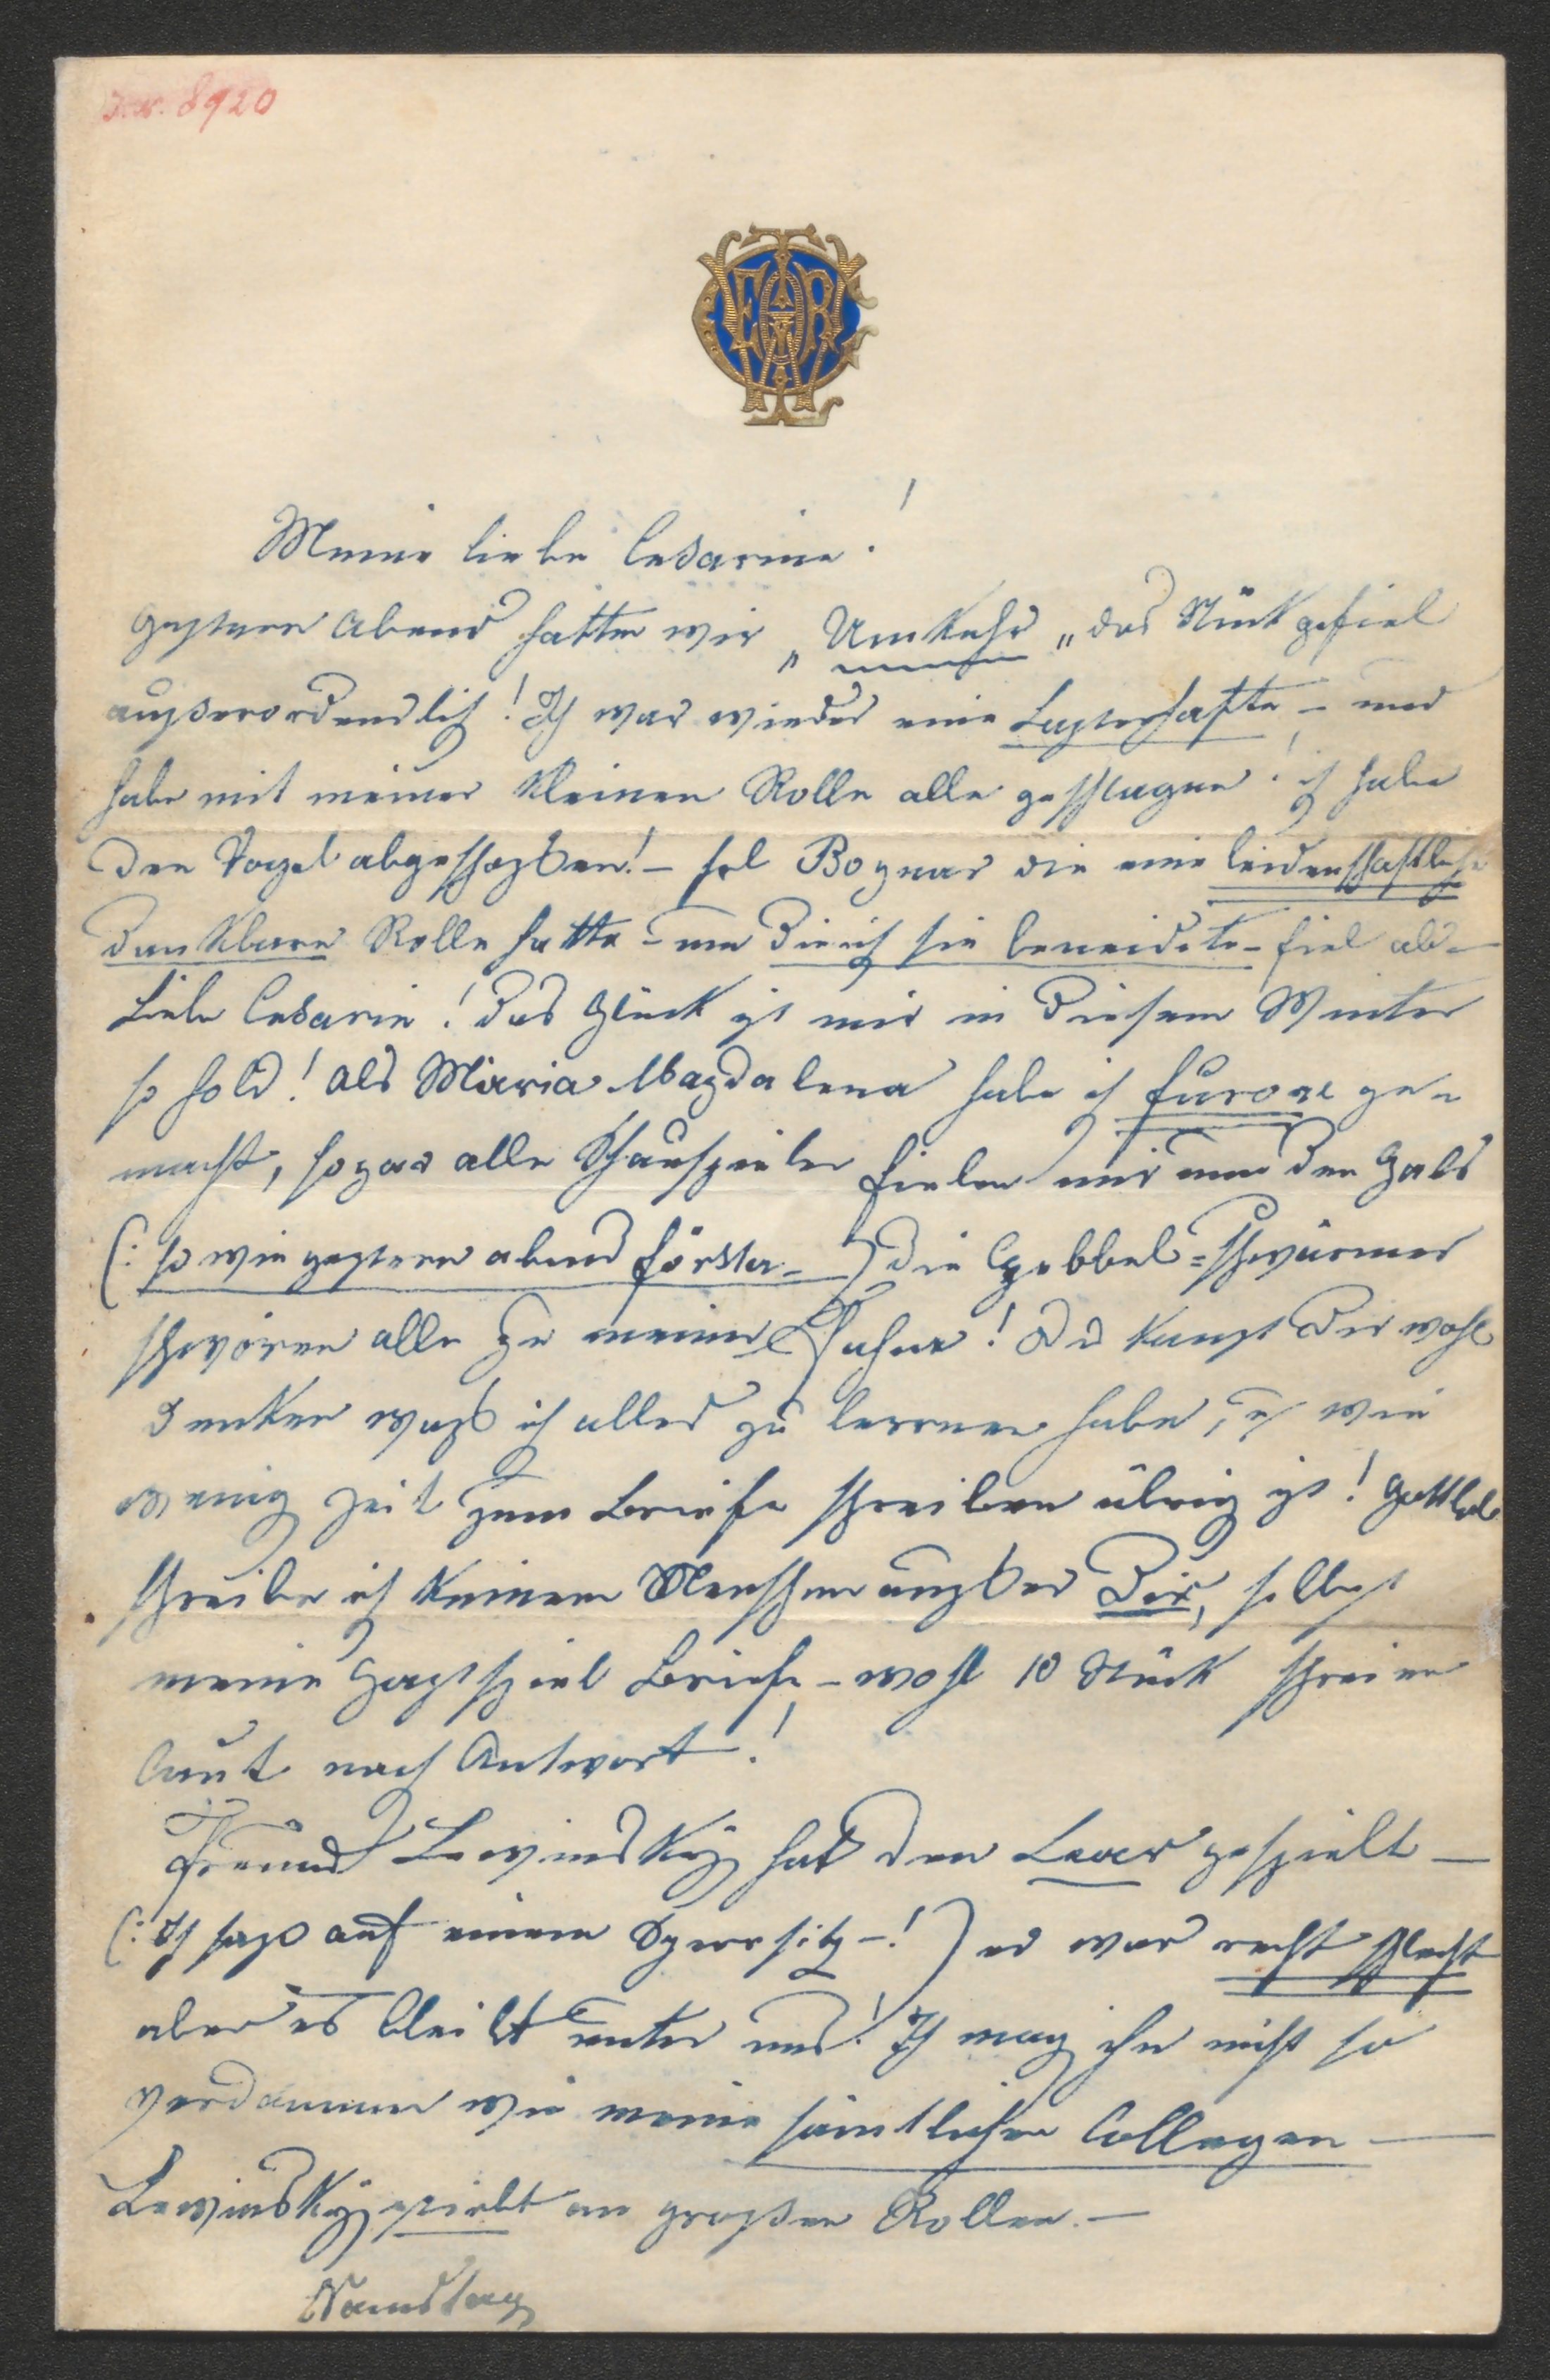 J.N. 8920
Meine liebe Cesarine!
Gestern Abend hatten wir „Umkehr„ das Stück gefiel
außerordendlich! Ich war wieder eine Lasterhafte – und
habe mit meiner kleinen Rolle alle geschlagen! ich habe
den Vogel abgeschoßen! – frl Bognar die eine leidenschaftliche
dankbare Rolle hatte – um die ich sie beneidete – fiel ab –
Liebe Cesarin! das Glück ist mir in diesem Winter
so hold! als Maria Magdalena habe ich furore ge=
macht, sogar alle Schauspieler fielen mir um den Hals
(: so wie gestern abend förster – ) die Hebbel=schwärmer
schwören alle zu meiner Fahne! Du kanst dir wohl
denken waß ich alles zu lernen habe, u wie
wenig Zeit zum Briefe schreiben übrig ist! Gottlob
schreibe ich keinem Menschen außer Dir, selbst
meine Gastspiel Briefe – wohl 10 Stück schreien
laut nach Antwort!
Freund Lewinsky hat den Lear gespielt –
(: Ich saß auf einem Sperrsitz –! ) er war recht schlecht
aber es bleibt unter uns! Ich mag ihn nicht so
verdammen wie meine sämtlichen Collegen –
Lewinsky an großen Rollen. –